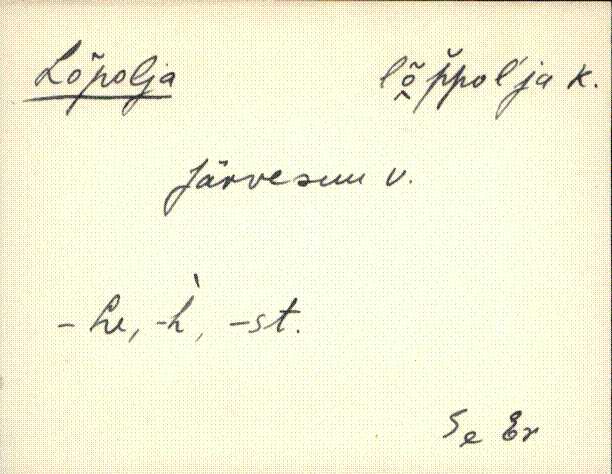 Lõpolja lõ̭p̆pol'ja k.
Järvesuu v.
-he, -h̀, -st.
Se Er